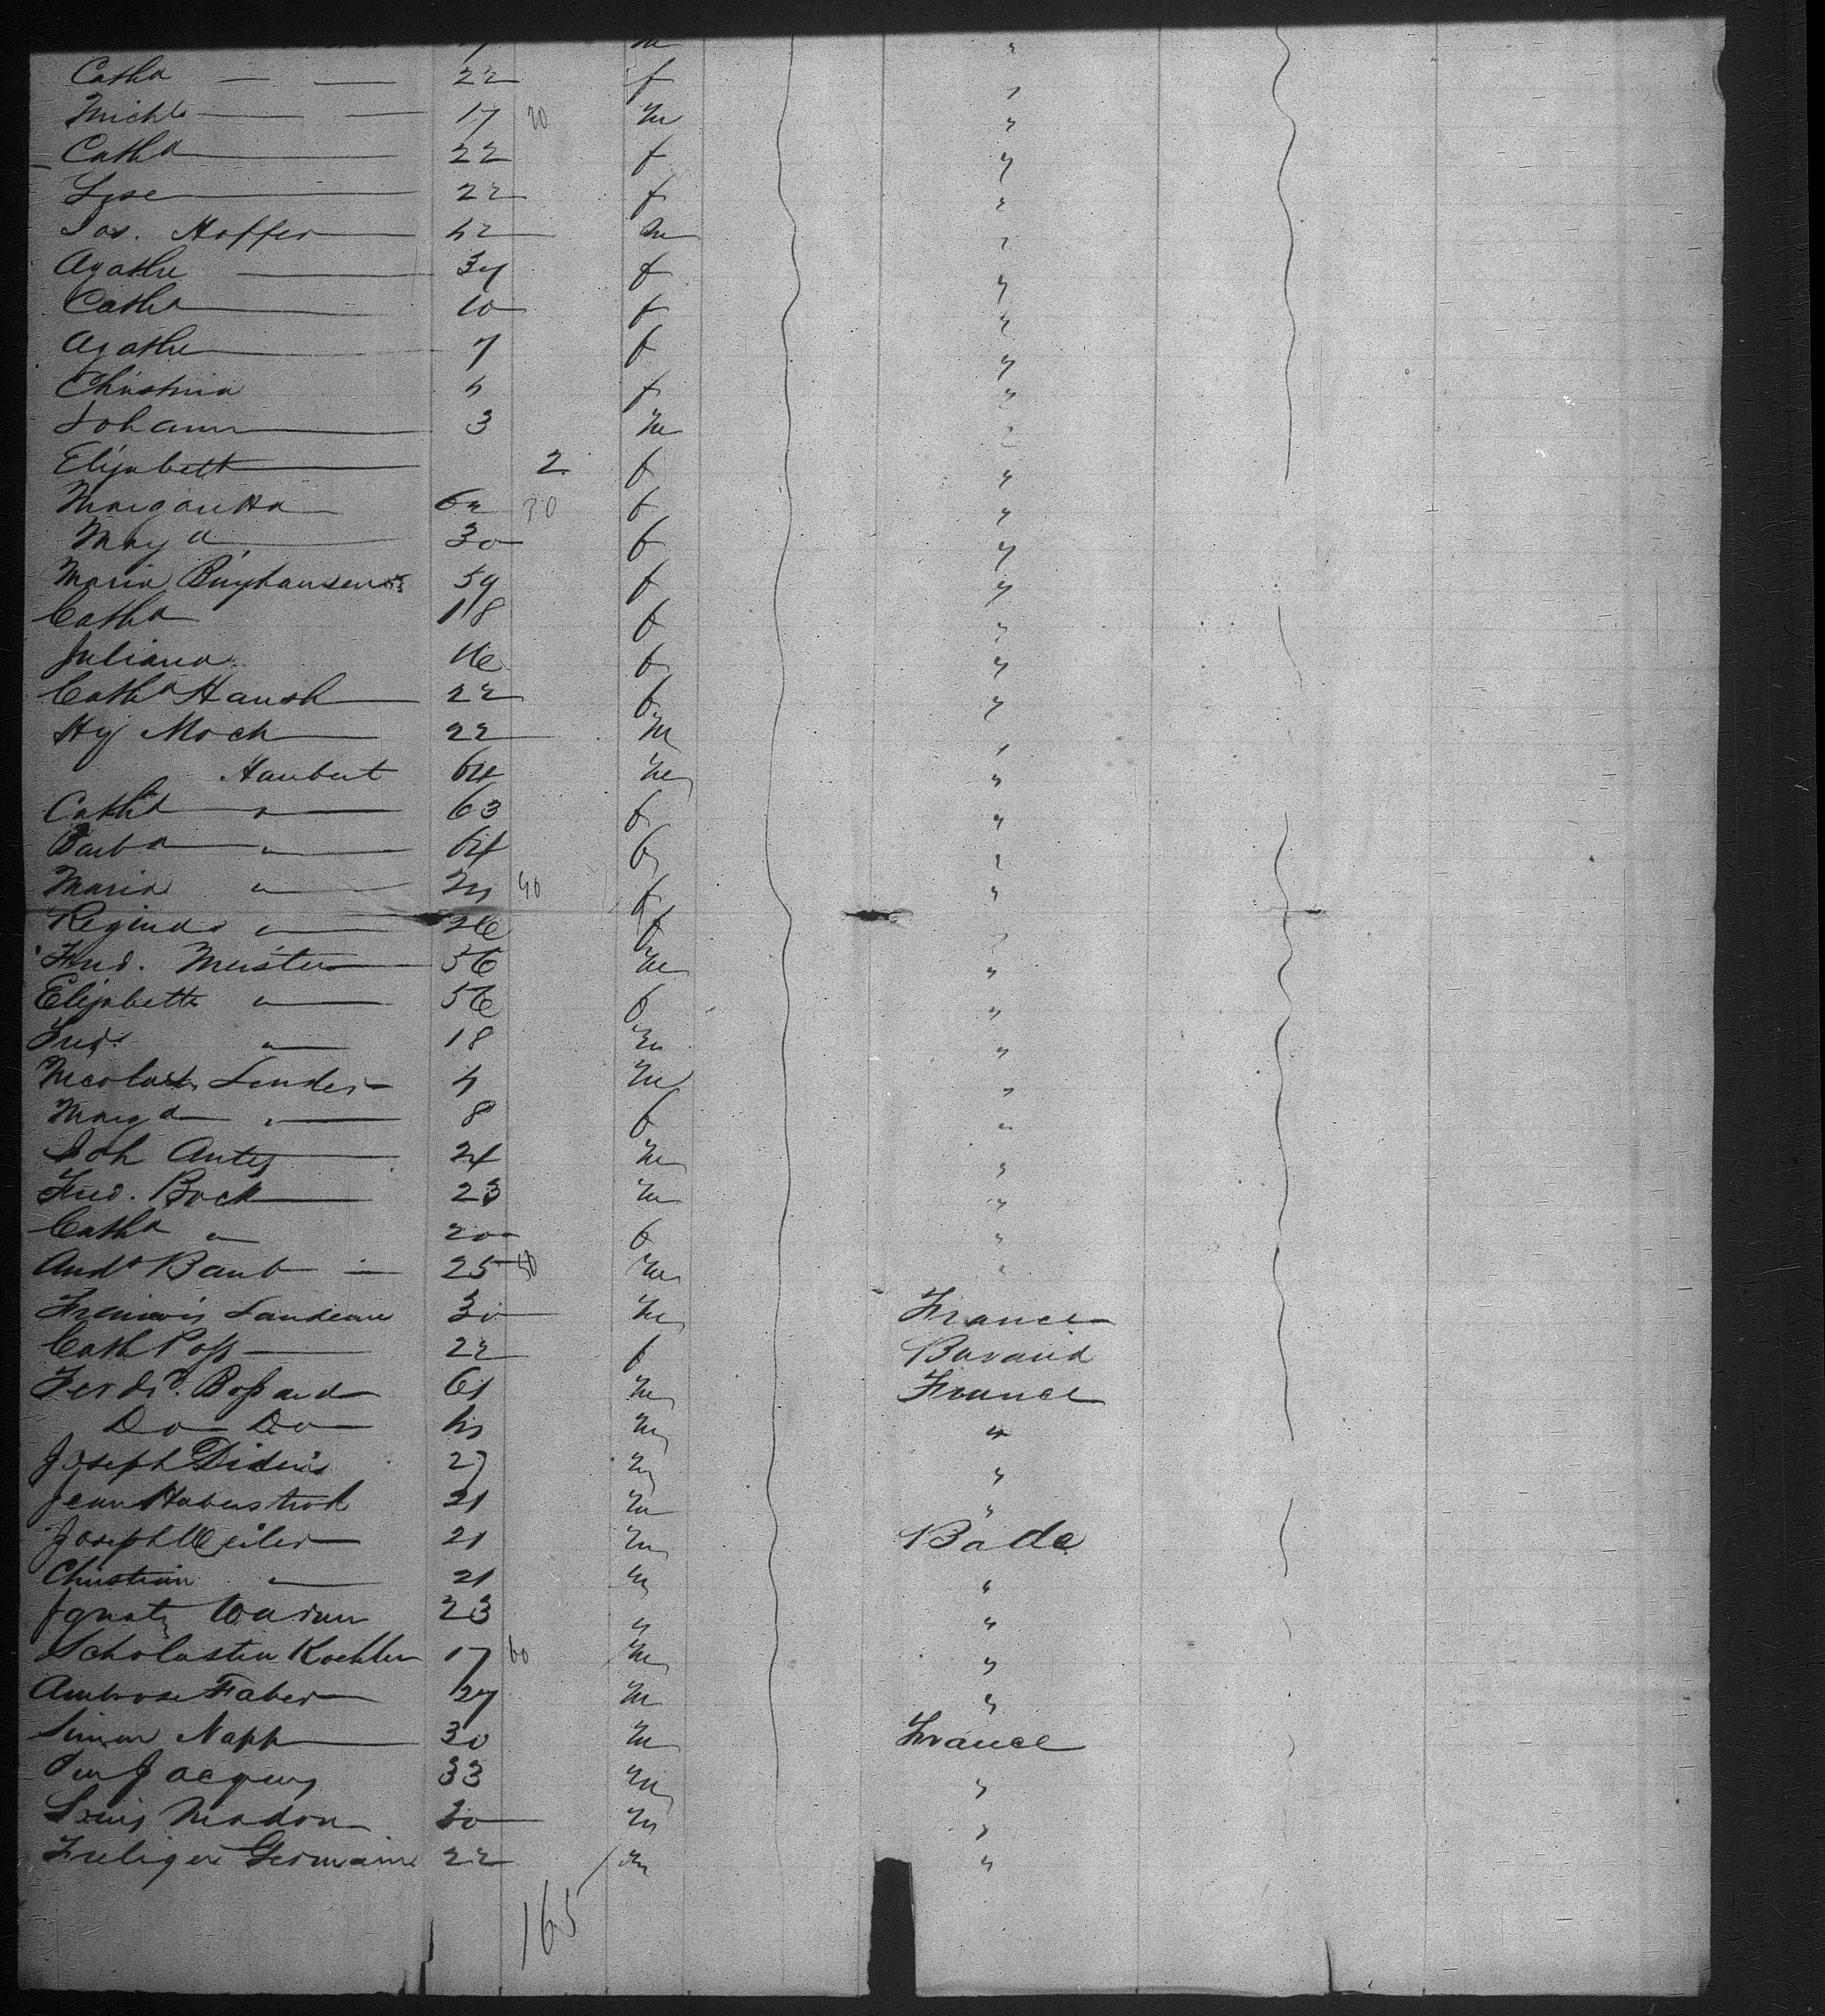 Catha — — 22 f "
Michl — — 17 20 m "
Catha — 22 f "
Lise — 22 f "
Jos. Hoffer — 42 m "
Agathe — 37 f "
Catha — 10 f "
Agathe — 7 f "
Christina 4 f "
Johann — 3 m "
Elizabeth — 2 f "
Margaretha — 30 f "
Marga — 30 f "
Maria 59 f "
Catha 18 f "
Juliana 16 f "
Catha — 22 f "
Hy Moch — 22 m "
Haubert 64 m "
Catha " — 63 f "
Barba " — 64 f "
Maria " — 40 f "
Regina " — 26 f "
Fred. Meister — 56 m "
Elizabeth " — 56 f "
Fred. " — 18 m "
Nicolas Lender — 4 m "
Marga " — 8 f "
Joh Antes — 24 m "
Fred. Bock — 23 m "
Catha " 20 f "
Andr Baub — 25 50 m "
Francois Landeau 30 m France
Cath Popp — 22 f Bavaria
Ferdd. Bossard 61 m France
Do — Do — m "
Joseph 27 m "
Jean Haberstroh 21 m "
Joseph Weiler — 21 m Bade
Christian " — 21 m "
Ignatz 23 " "
Scholastin Koehler 17 60 m "
Ambrose Faber — 27 m "
Simon Napp — 30 m France
Jacques 33 m "
Louis Madon m "
Germaine 22 m "
165